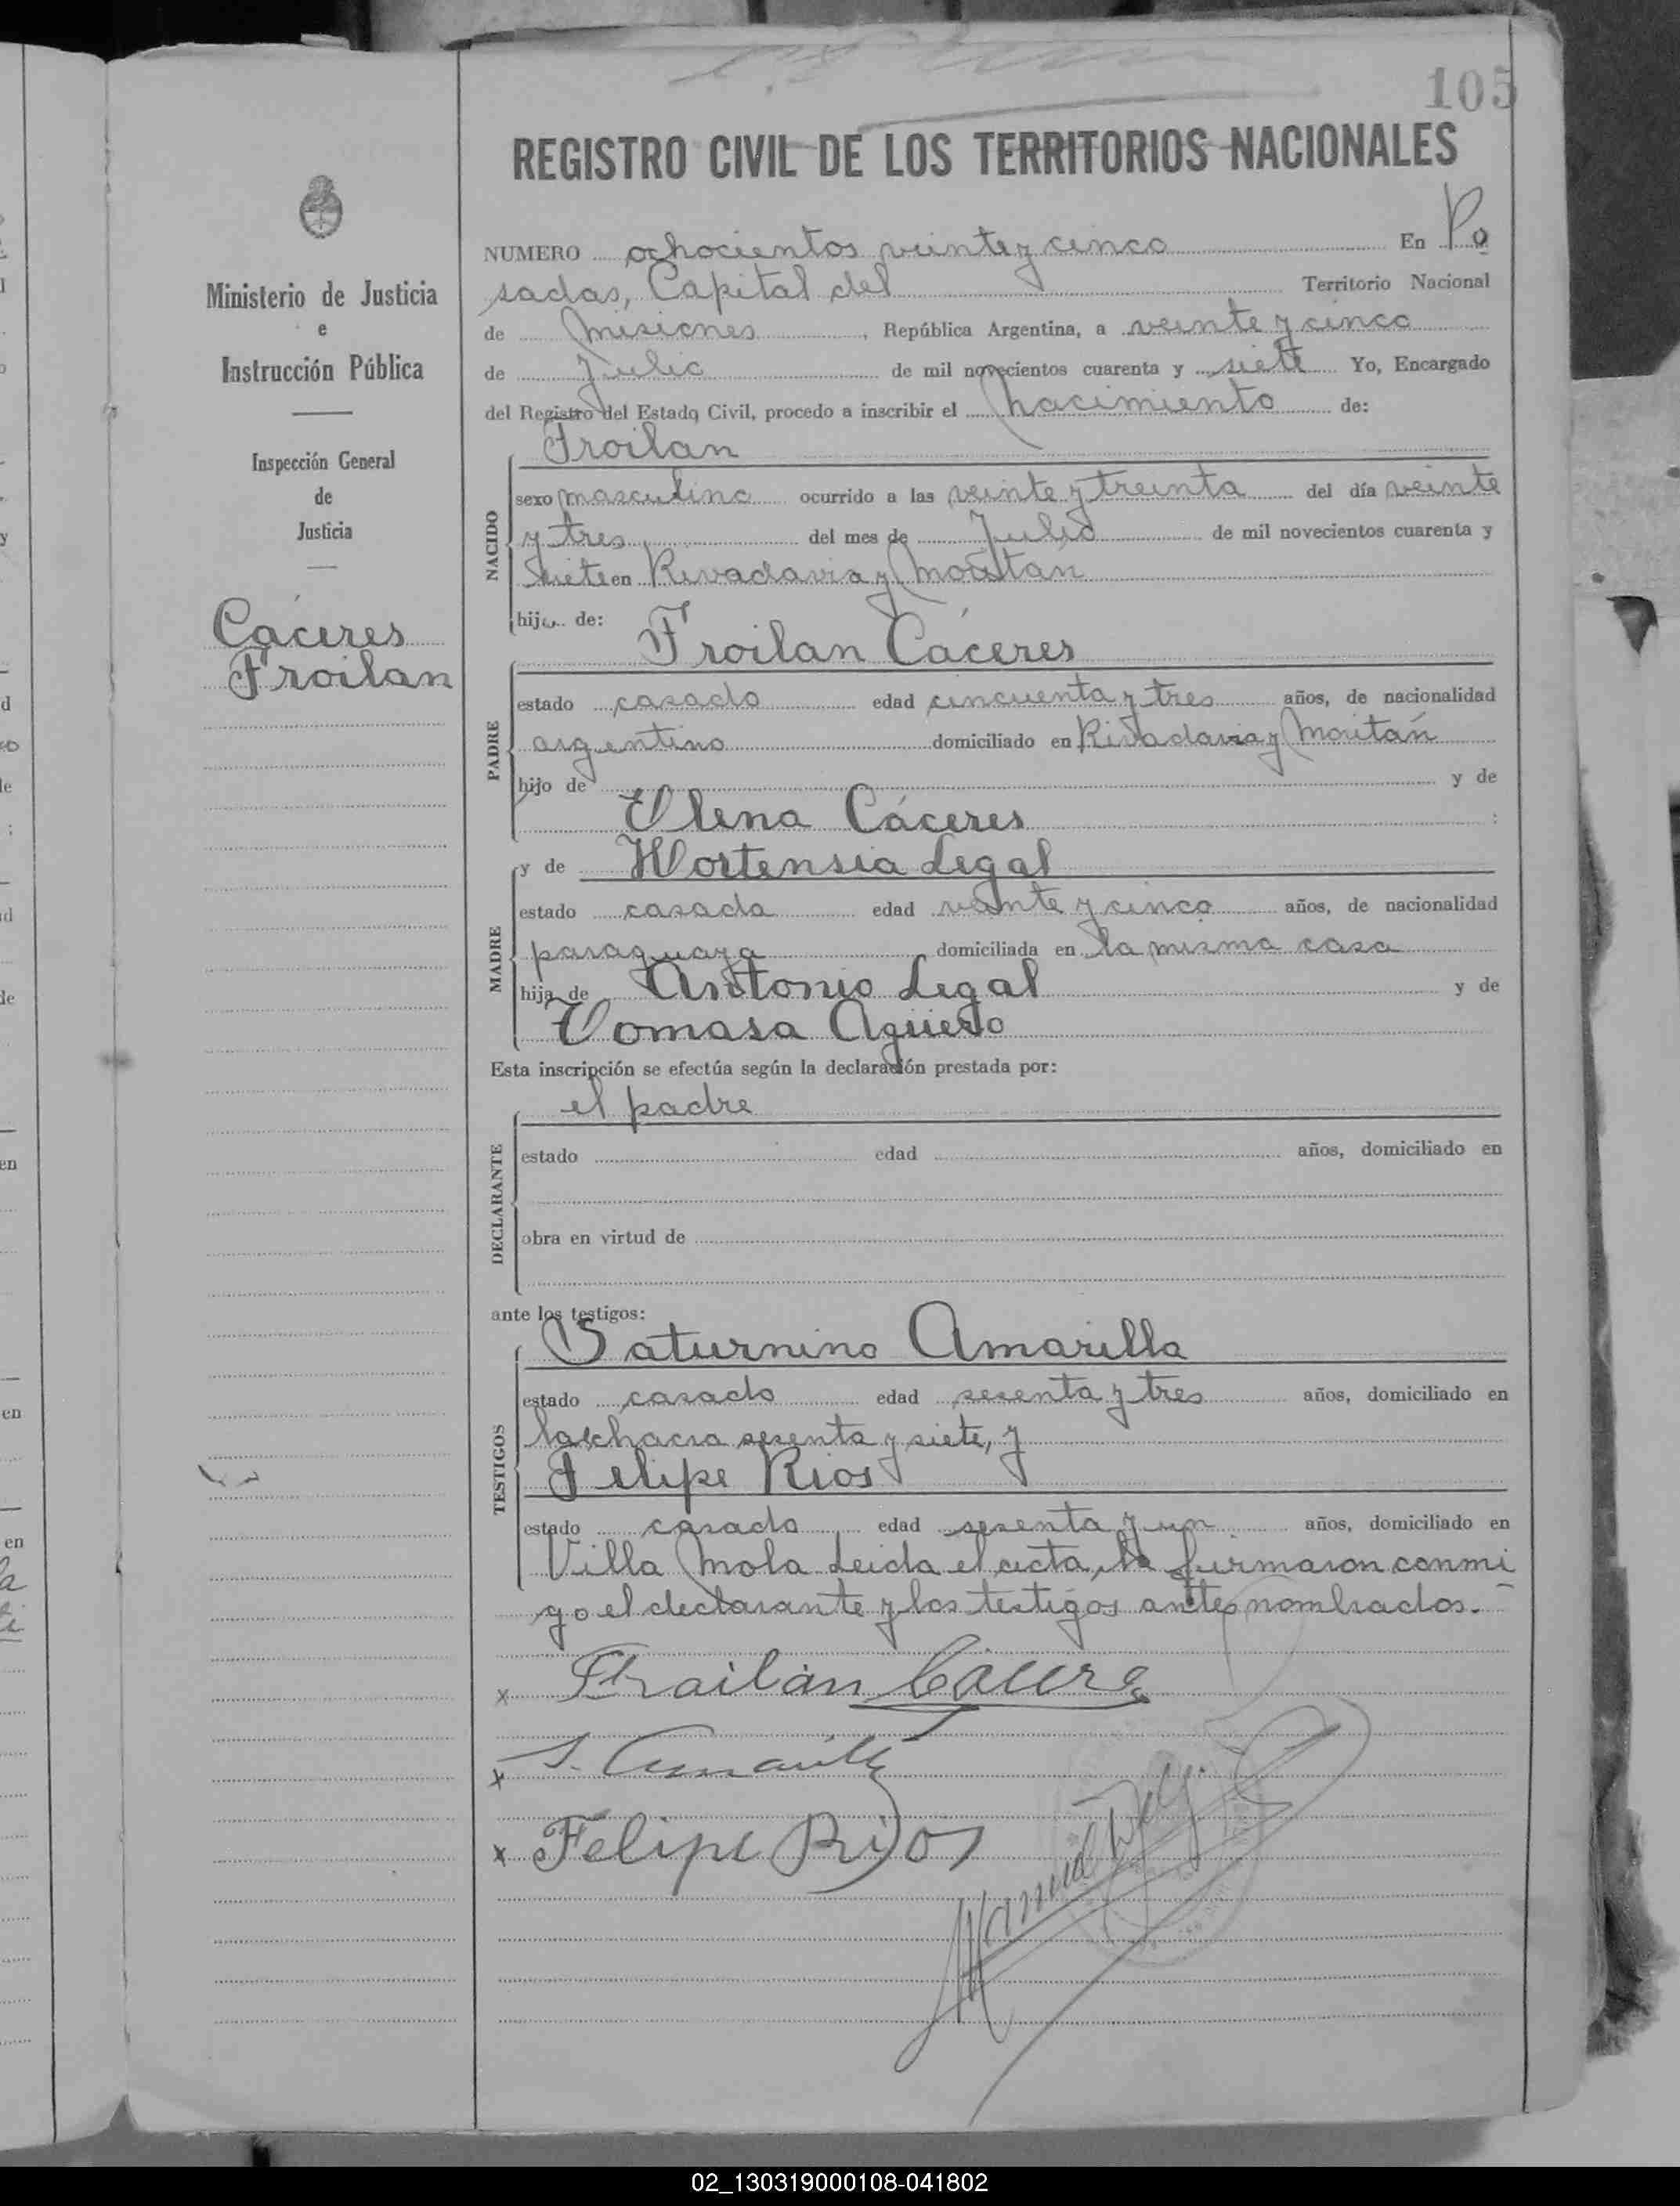 105
REGISTRO CIVIL DE LOS TERRITORIOS NACIONALES
Ministerio de Justicia
e
Instrucción Pública
Inspección General
de
Justicia
Cáceres
Froilan
NUMERO ochocientos veinte y cinco En Po
sadas, Capital del Territorio Nacional
de Misiones, República Argentina, a veinte y cinco
de Julio de mil novecientos cuarenta y siete Yo, Encargado
del Registro del Estado Civil, procedo a inscribir el nacimiento de:
Froilan
NACIDO
sexo masculino ocurrido a las veinte y treinta del día veinte
y tres del mes de Julio de mil novecientos cuarenta y
siete en Rivadavia y Moritán
hijo de:
Froilan Cáceres
PADRE
estado casado edad cincuenta y tres años, de nacionalidad
argentino domiciliado en Rivadavia y Moritán
hijo de y de
Elena Cáceres :
MADRE
y de Hortensia Legal
estado casada edad veinte y cinco años, de nacionalidad
paraguaya domiciliada en la misma casa
hija de Antonio Legal y de
Tomasa Agüero
Esta inscripción se efectúa según la declaración prestada por:
el padre
DECLARANTE
estado edad años, domiciliado en
obra en virtud de
ante los testigos:
Saturnino Amarilla
TESTIGOS
estado casado edad sesenta y tres años, domiciliado en
la chacra sesenta y siete, y
Felipe Rios
estado casado edad sesenta y un años, domiciliado en
Villa Mola Leida el acta, la firmaron conmi
go el declarante y los testigos antes nombrados.-
x Froilan Cáceres
x S. Amarilla
x Felipe Rios
02_130319000108-041802